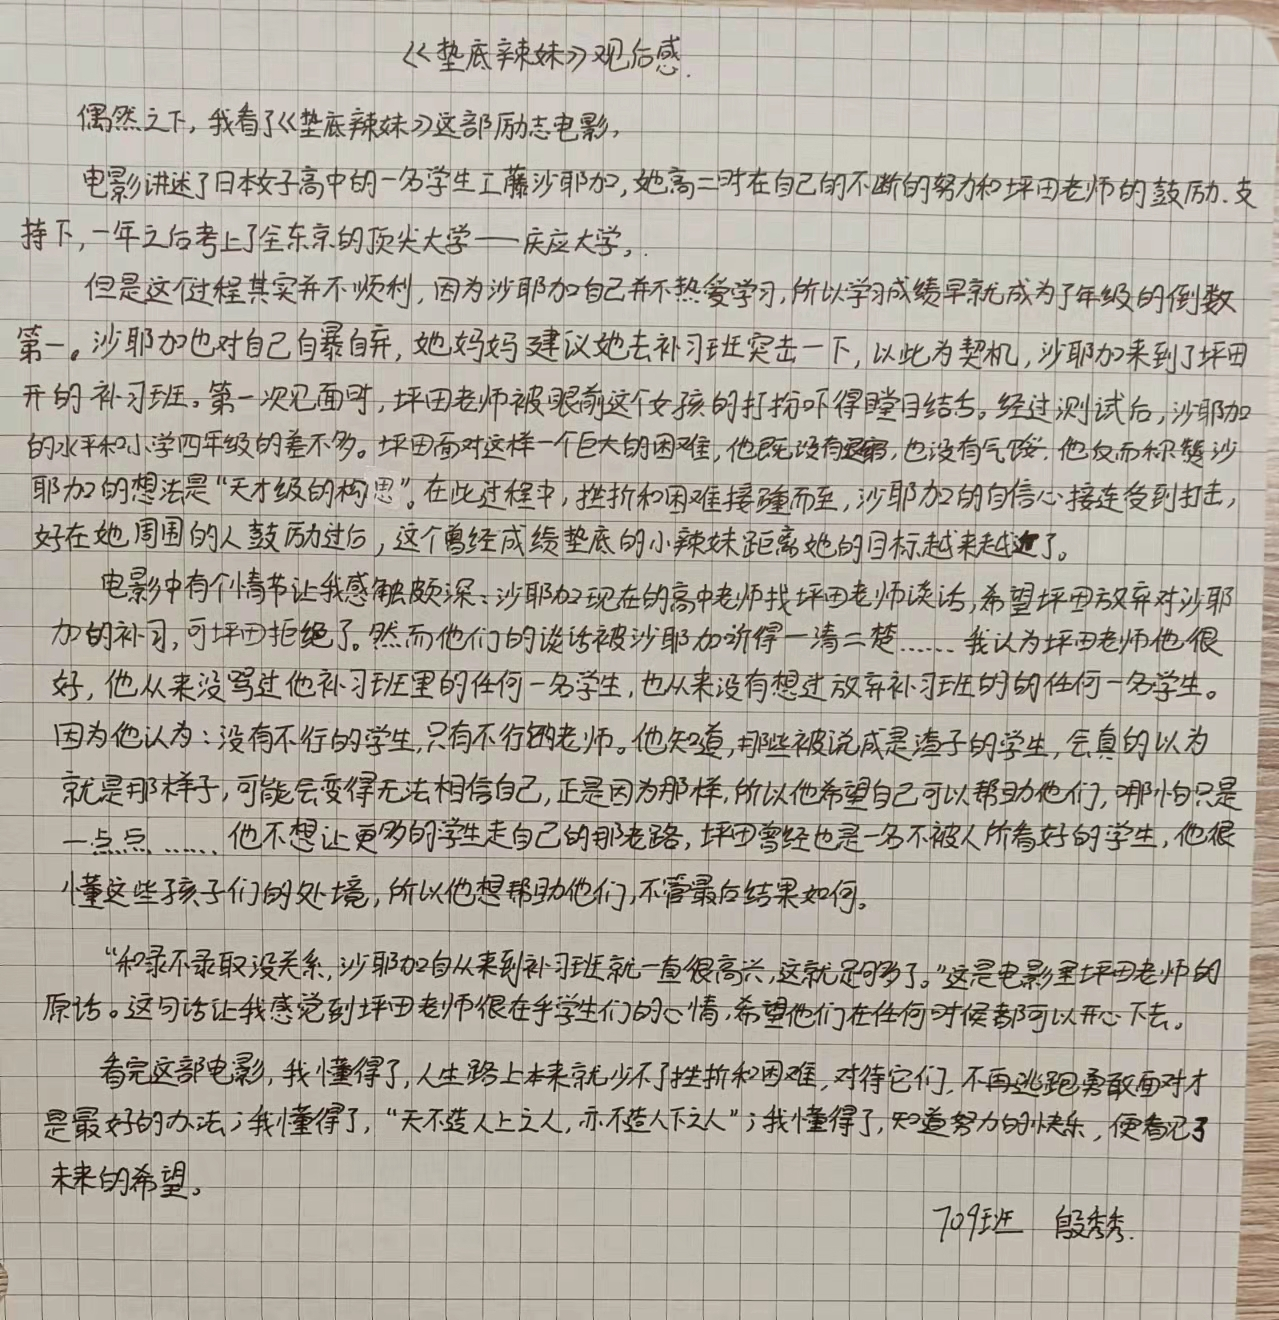 《垫底辣妹》观后感.
偶然之下，我看了《垫底辣妹》这部励志电影，
电影讲述了日本女子高中的一名学生工藤沙耶加，她高二时在自己的不断的努力和坪田老师的鼓励、支
持下，一年之后考上了全东京的顶尖大学——庆应大学，.
但是这个过程其实并不顺利，因为沙耶加自己并不热爱学习，所以学习成绩早就成为了年级的倒数
第一。沙耶加也对自己自暴自弃，她妈妈建议她去补习班突击一下，以此为契机，沙耶加来到了坪田
开的补习班。第一次见面时，坪田老师被眼前这个女孩的打扮吓得瞠目结舌。经过测试后，沙耶加
的水平和小学四年级的差不多。坪田面对这样一个巨大的困难，他既没有退缩，也没有气馁，他反而称赞沙
耶加的想法是“天才级的构思”。在此过程中，挫折和困难接踵而至，沙耶加的自信心接连受到打击，
好在她周围的人鼓励过后，这个曾经成绩垫底的小辣妹距离她的目标越来越近了。
电影中有个情节让我感触颇深：沙耶加现在的高中老师找坪田老师谈话，希望坪田放弃对沙耶
加的补习，可坪田拒绝了。然而他们的谈话被沙耶加听得一清二楚……我认为坪田老师他很
好，他从来没骂过他补习班里的任何一名学生，也从来没有想过放弃补习班的的任何一名学生。
因为他认为：没有不行的学生，只有不行的老师。他知道，那些被说成是渣子的学生，会真的以为
就是那样子，可能会变得无法相信自己，正是因为那样，所以他希望自己可以帮助他们，哪怕只是
一点点……他不想让更多的学生走自己的那老路，坪田曾经也是一名不被人所看好的学生，他很
懂这些孩子们的处境，所以他想帮助他们，不管最后结果如何。
“和录不录取没关系，沙耶加自从来到补习班就一直很高兴，这就足够了。”这是电影里坪田老师的
原话。这句话让我感觉到坪田老师很在乎学生们的心情，希望他们在任何时候都可以开心下去。
看完这部电影，我懂得了，人生路上本来就少不了挫折和困难，对待它们，不再逃跑勇敢面对才
是最好的办法；我懂得了，“天不造人上之人，亦不造人下之人”；我懂得了，知道努力的快乐，便看见了
未来的希望。
709班 殷秀秀.